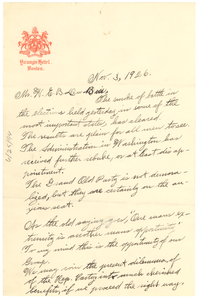 Young's Hotel,
Boston.
Nov. 3, 1926.
Mr. W. E. B. Du Bois,
The smoke of battle in
the elections held yesterday in some of the
most important states, has cleared.
The results are plain for all men to see.
The Administration in Washington has
received further rebuke, or at least disap-
pointment.
The Grand Old Party is not demoral-
ized, but they are certainly on the
anxious seat.
As the old saying goes, One mans ex-
tremity is another mans opportunity.
To my mind this is the opportunity of our
Group.
We may in the present dilemma of
the Rep. Party into much cherished
benefits, if we proceed the right way.